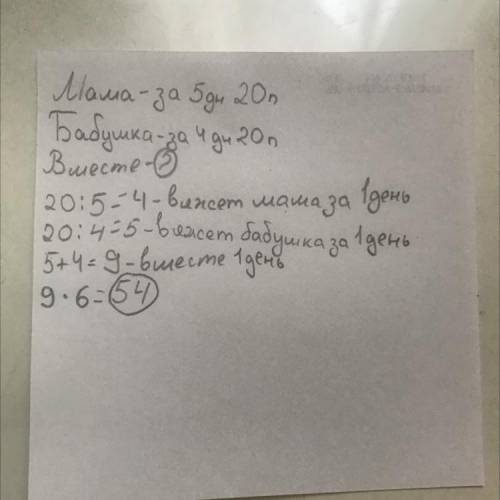 Мама-за 5дн 20п
Бабушка-за 4дн 20п
Вместе-?
20:5=4-вяжет мама за 1день
20:4=5-вяжет бабушка за 1день
5+4=9-вместе 1день
9·6=54